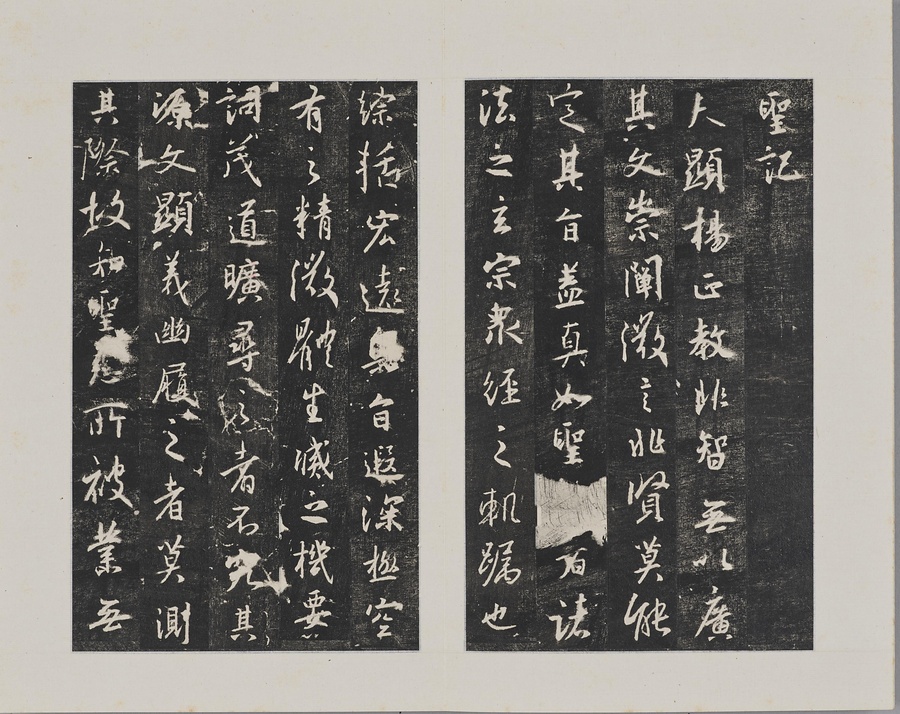 聖記
大顯揚正教非智無以廣
其文崇闡微言非賢莫能
定其旨蓋真如聖者諸
法之玄宗衆經之軌躅也
綜括宏遠奧旨遐深極空
有之精微體生滅之機要
詞茂道曠尋之者不究其
源文顯義幽履之者莫測
其際故知聖慈所被業無